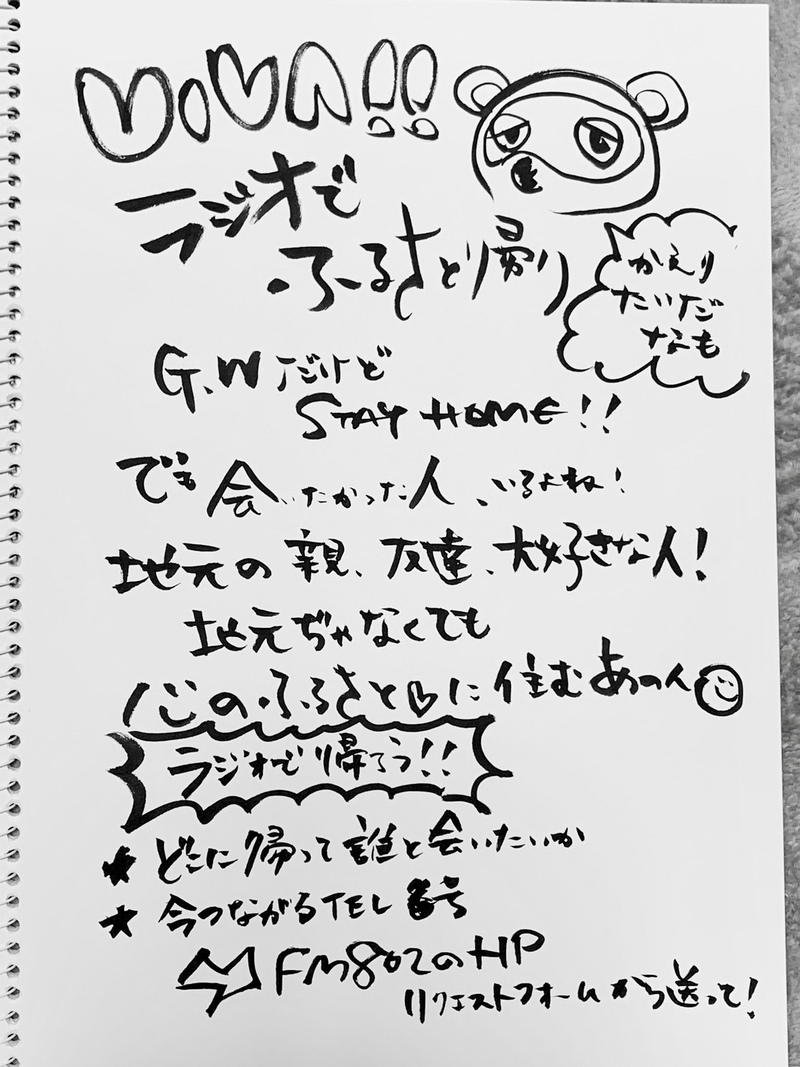 ViVA!!
ラジオで
ふるさとり帰り
かえり
たいだ
なも
G.Wだけど
STAY HOME!!
でも会いたかった人、いるよね!
地元の親、友達、大好きな人!
地元ぢゃなくても
心のふるさと♡に住むあの人
ラジオで帰ろう!!
★どこに帰って誰と会いたいか
★今つながるTEL番号
FM802のHP
リクエストフォームから送って!